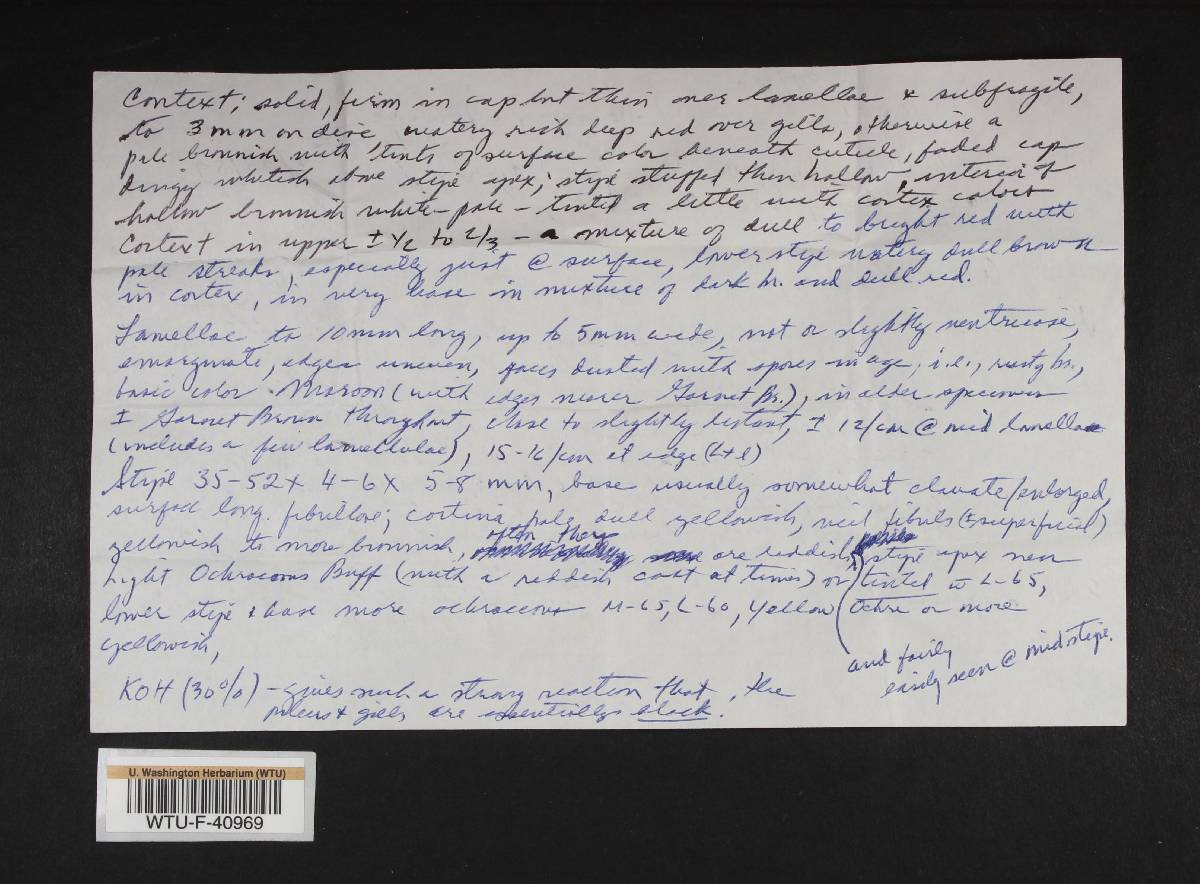 Context; solid, firm in cap but thin over lamellae & subfragile,
to 3 mm on disc, watery rich deep red over gills, otherwise a
pale brownish with tints of surface color beneath cuticle, faded cap
dingy whitish above stipe apex; stipe stuffed then hollow, interior of
hollow brownish white-pale - tinted a little with cortex colors
Cortext in upper ± 1/2 to 2/3 - a mixture of dull to bright red with
pale streaks, especially just @ surface, lower stipe watery dull brown
in cortex, in very base in mixture of dark br. and dull red.
Lamellae to 10mm long, up to 5mm wide, not or slightly ventricose,
emarginate, edges uneven, faces dusted with spores in age, i.e., rusty br.,
basic color Maroon (with edges nearer Garnet Br.), in older specimens
± Garnet Brown throughout, close to slightly distant, ± 12/cm @ mid lamellae
(includes a few lamellulae), 15-16/cm at edge (L+l)
Stipe 35-52 x 4-6 x 5-8 mm, base usually somewhat clavate/enlarged,
surface long. fibrillose; cortina pale dull yellowish, veil fibrils (± superficial)
yellowish to more brownish, often there are reddish, stipe apex near
Light Ochraceous Buff (with a reddish cast at times) or tinted w L-65,
lower stipe & base more ochraceous M-65, L-60, Yellow Ochre or more
yellowish,
and fairly
easily seen @ mid stipe.
KOH (30%) - gives such a strong reaction that the
pileus & gills are essentially black.
U. Washington Herbarium (WTU)
WTU-F-40969